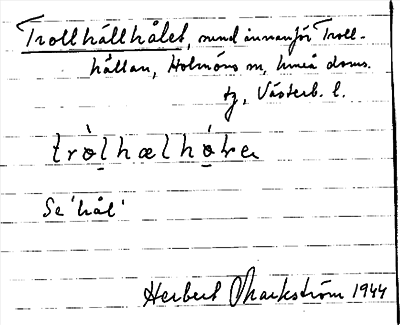 Trollhällhålet, sund innanför Troll-
hällan, Holmöns sn, Umeå doms.
tg, Västerb. l.
Se 'hål'
Herbert Markström 1944